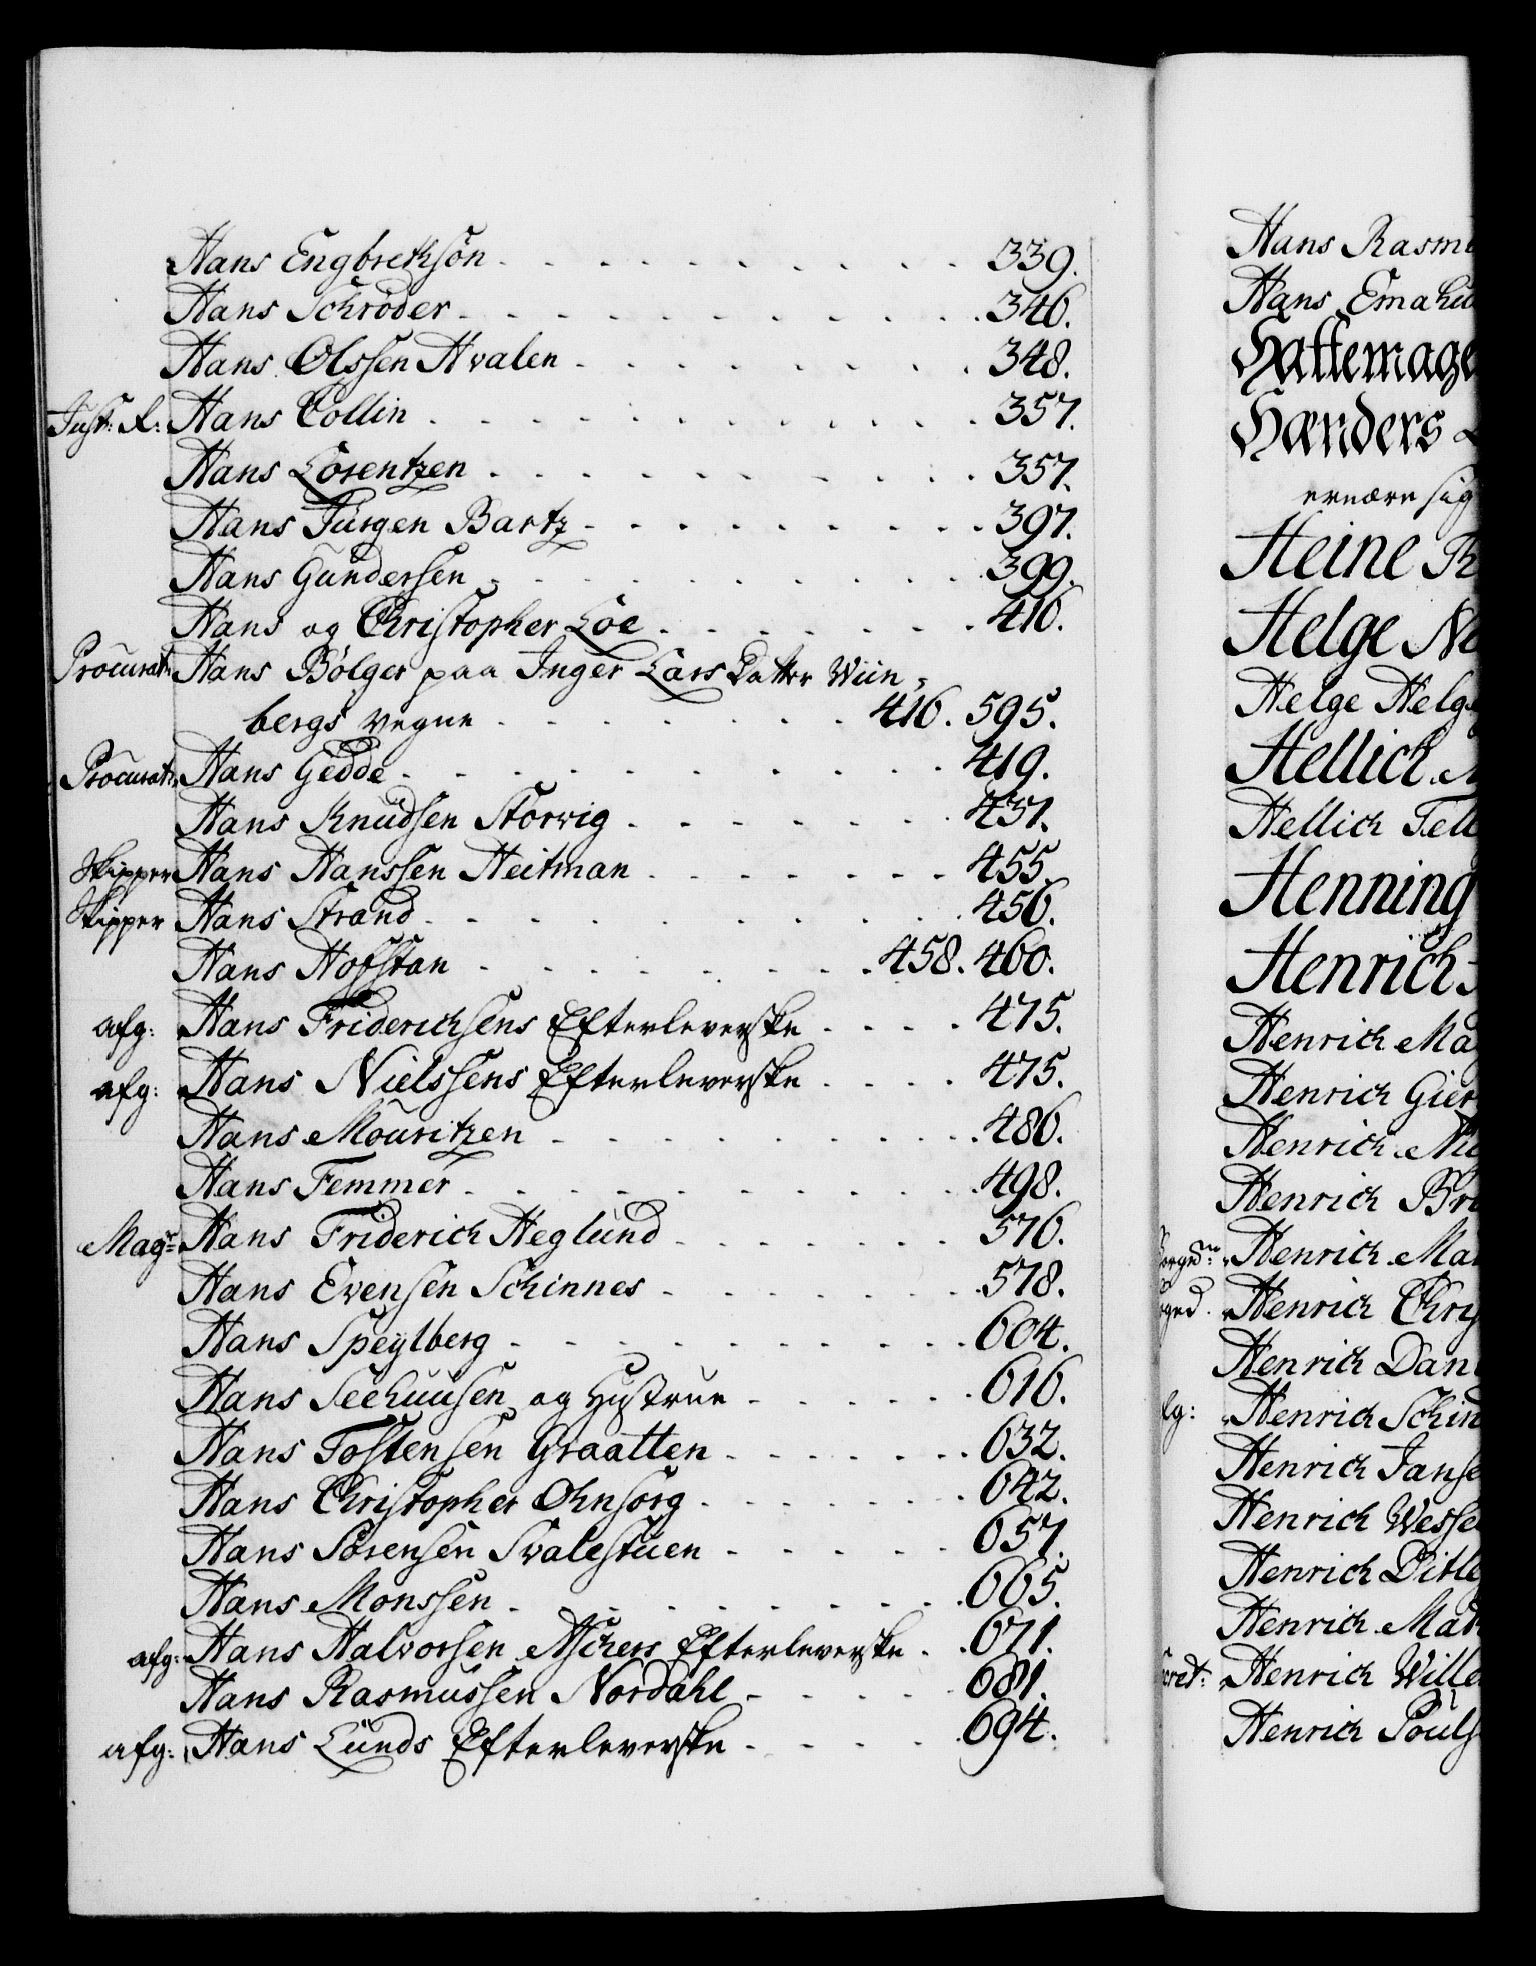 Hans Engbrethsön . . . . . . . . . . . 339.
Hans Schröder . . . . . . . . . . . 346.
Hans Olssen Hvalen . . . . . . . . 348.
Just: R: Hans Collin . . . . . . . . . . . 357.
Hans Lorentzen . . . . . . . . . . 357.
Hans Jürgen Bartz . . . . . . . . 397.
Hans Gundersen . . . . . . . . . . 399.
Hans og Christopher Loe . . . . . . . 416.
Procurat: Hans Bölger paa Inger Lars Datter Wiin,
bergs vegne . . . . . . . 416. 595.
Procurat: Hans Gedde . . . . . . . . . . . 419.
Hans Knudsen Storvig . . . . . . . 451.
Skipper Hans Hanssen Heitman . . . . . . . 455.
Skipper Hans Strand . . . . . . . . . . . 456.
Hans Hofstan . . . . . . . . 458. 460.
afg: Hans Friderichsens Efterleverske . . . . 475.
afg: Hans Nielssens Efterleverske . . . . 475.
Hans Mouritzen . . . . . . . . . . 486.
Hans Femmer . . . . . . . . . . . 498.
Magr: Hans Friderich Heglund . . . . . . . 576.
Hans Evensen Schinnes . . . . . . . 578.
Hans Speylberg . . . . . . . . . . 604.
Hans Seehuusen og Hustrue . . . . . 616.
Hans Tostensen Graatten . . . . . . 632.
Hans Christopher Ohnsorg . . . . . . 642.
Hans Sörensen Svalestuen . . . . . . 657.
Hans Monssen . . . . . . . . . . 665.
afg: Hans Halvorsen Aschers Efterleverske . . 671.
Hans Rasmussen Nordahl . . . . . 681.
afg: Hans Lünds Efterleverske . . . . . 694.
Hans Rasm
Hans
Hattemage
Hænders
ernære sig
Heine
Helge
Helge Helg
Hellich
Hellich
Henning
Henrich
Henrich Mag
Henrich Gier
Henrich
Henrich
Henrich Ma
Henrich Chry
Henrich Dan
Henrich Schin
Henrich Janse
Henrich Wesse
Henrich Ditle
Henrich Mat
Henrich Wille
Henrich Pouls